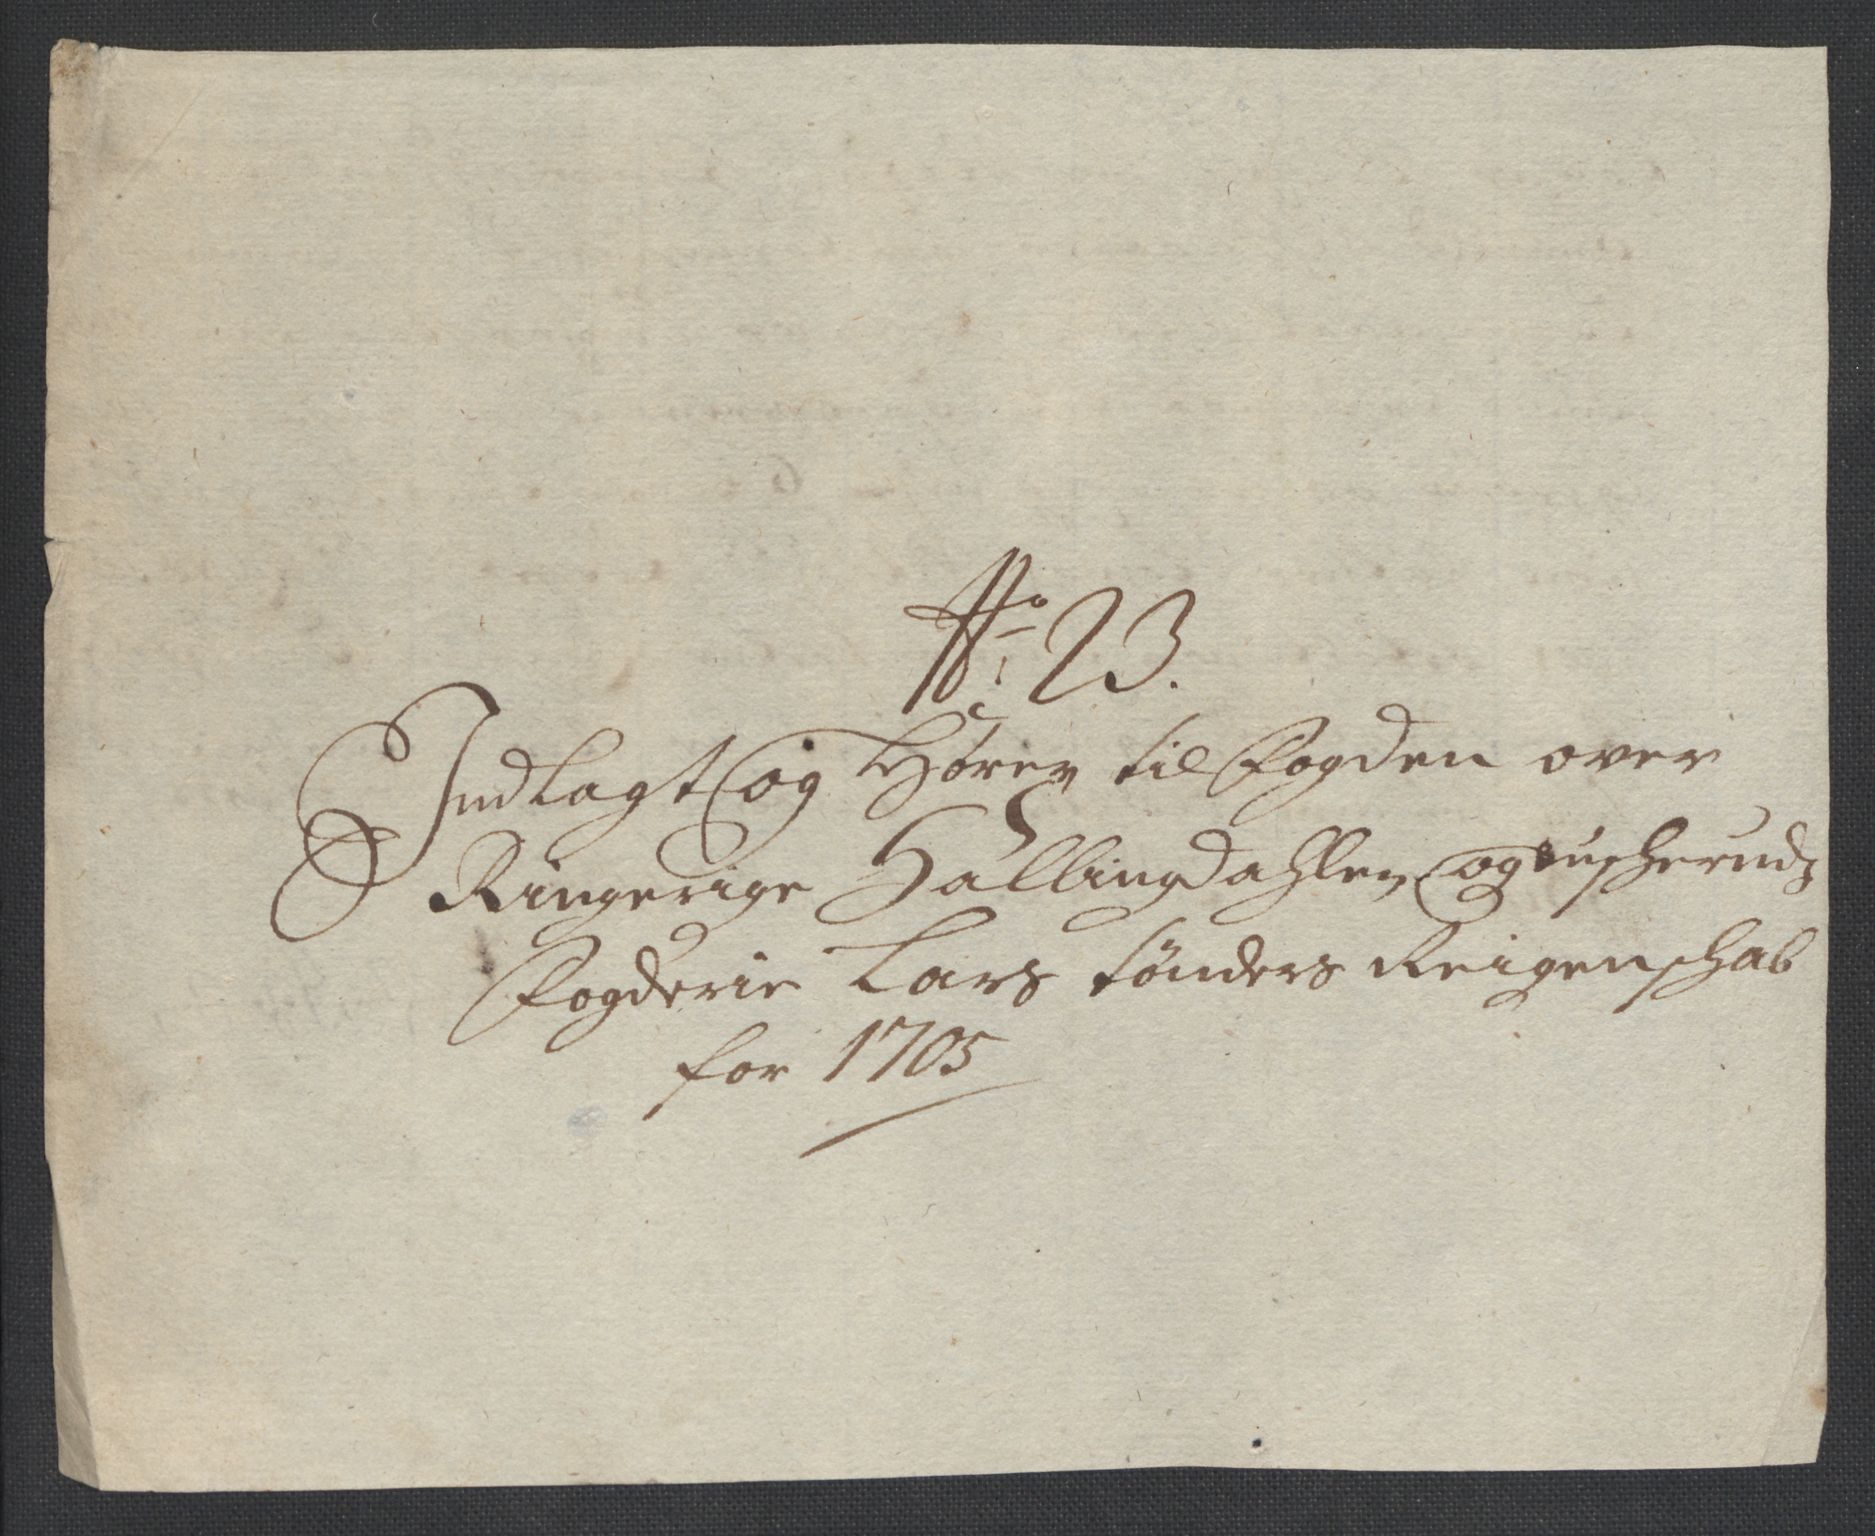 No: 23.
Indlagt og Hører til Fogden over
Ringerige Hallingdahlen og Buscheruds
Fogderie Lars tønders Reigenschab
for 1705